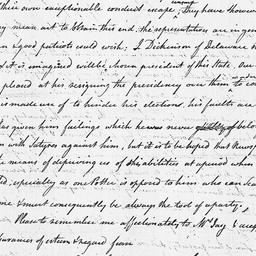 their own exceptionable conduct escape. They have however
my means art to obtain this end. the representation are in gene
an a good patriots could wish. J. Dickinson of Delaware
And it is imagined will be chosen president of this State. Our
pleased at his resigning the presidency over them to
is made use of to hinder his election, his faults are
has given him failings which he never
with Satyres against him, but it is to be hoped that
means of depriving us of his abilities at a period when
especially as one Potter is opposed to him who can
one & must consequently be always the tool of a party.
Please to remember me affectionately to Mrs Jay & accept
assurances of esteem & regard from